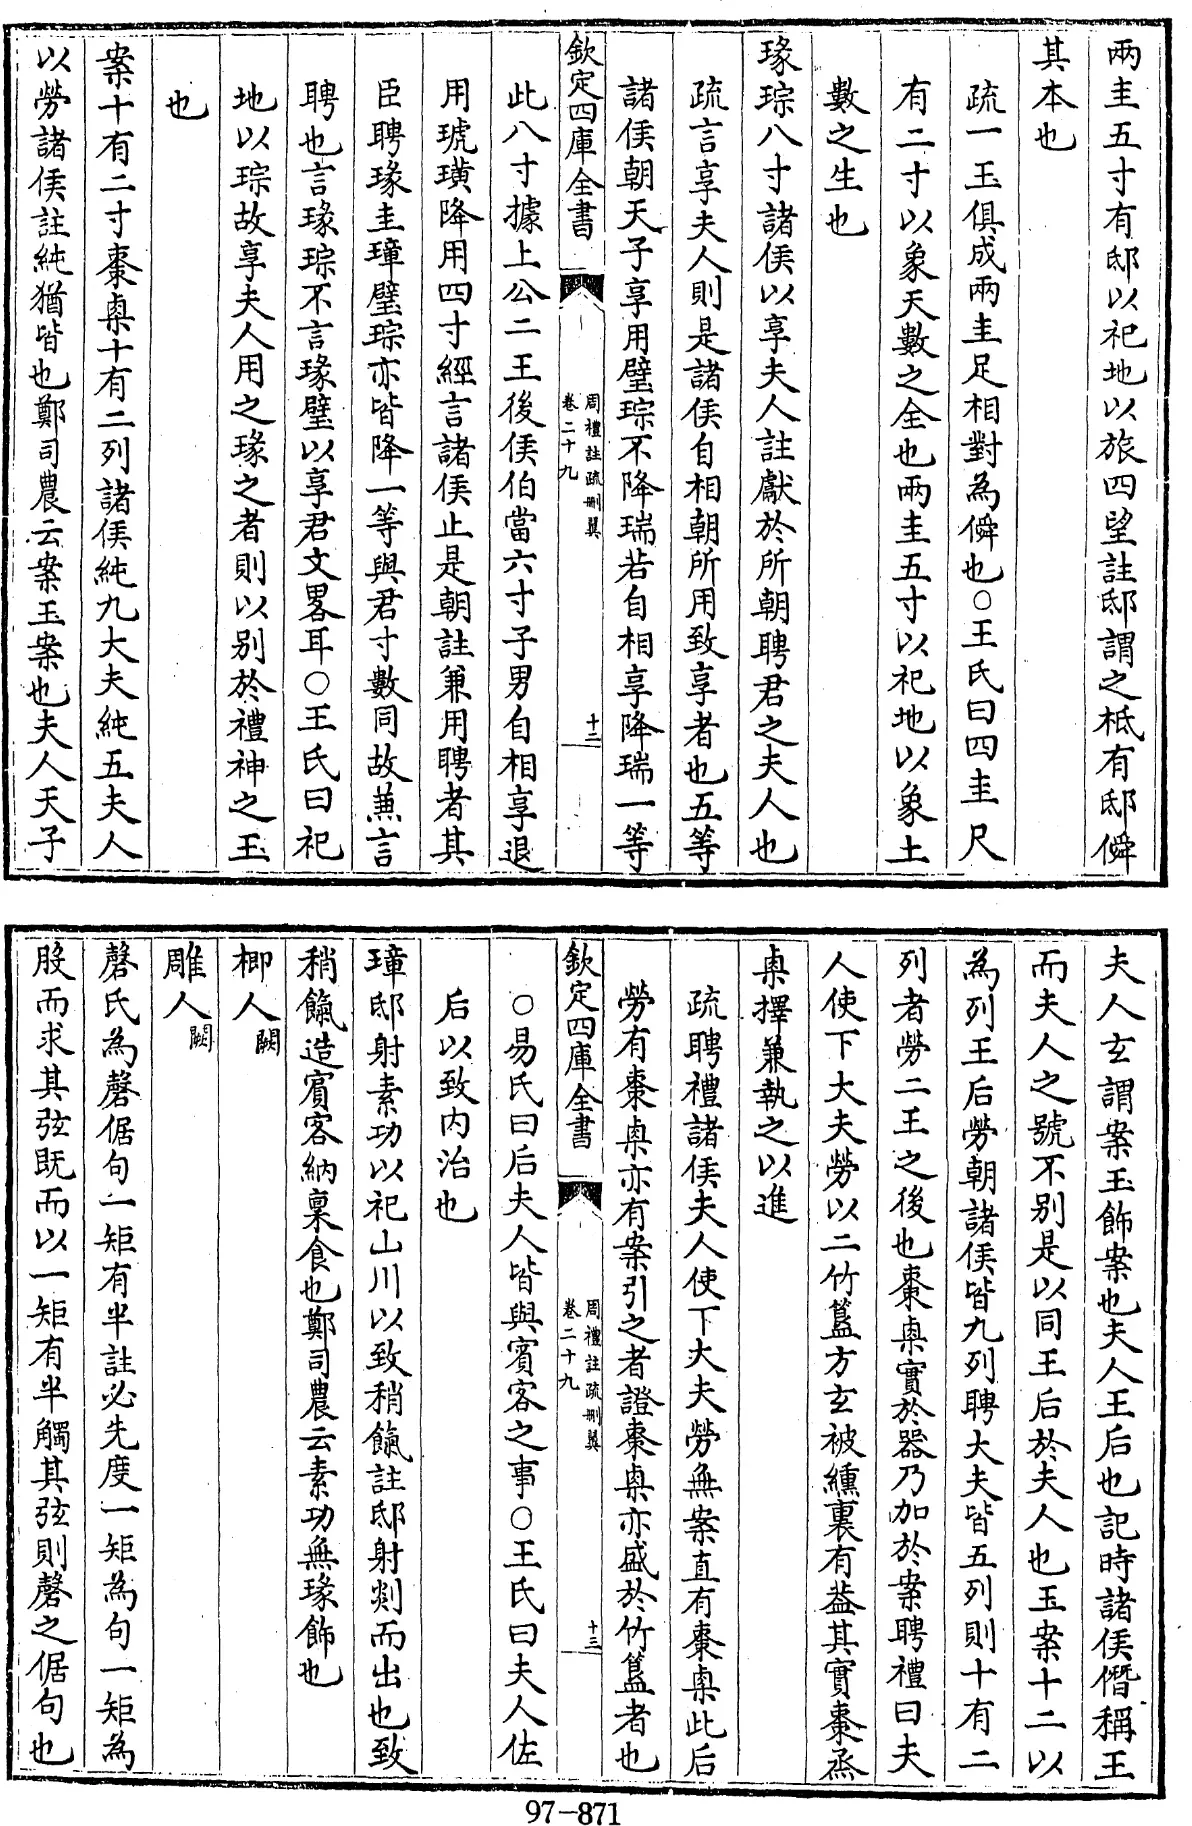 兩圭五寸有邸以祀地以旅四望註邸謂之柢有邸僢
其本也
疏一玉俱成兩圭足相對為僢也○王氏曰四圭尺
有二寸以象天數之全也兩圭五寸以祀地以象土
數之生也
瑑琮八寸諸侯以享夫人註獻於所朝聘君之夫人也
疏言享夫人則是諸侯自相朝所用致享者也五等
諸侯朝天子享用璧琮不降瑞若自相享降瑞一等
欽定四庫全書
周禮註疏刪翼
卷二十九
十二
此八寸據上公二王後侯伯當六寸子男自相享退
用琥璜降用四寸經言諸侯止是朝註兼用聘者其
臣聘瑑圭璋璧琮亦皆降一等與君寸數同故兼言
聘也言瑑琮不言瑑璧以享君文畧耳○王氏曰祀
地以琮故享夫人用之瑑之者則以别於禮神之玉
也
案十有二寸棗㮚十有二列諸侯純九大夫純五夫人
以勞諸侯註純猶皆也鄭司農云案玉案也夫人天子
夫人玄謂案玉飾案也夫人王后也記時諸侯僭稱王
而夫人之號不别是以同王后於夫人也玉案十二以
為列王后勞朝諸侯皆九列聘大夫皆五列則十有二
列者勞二王之後也棗㮚實於器乃加於案聘禮曰夫
人使下大夫勞以二竹簋方玄被纁裏有葢其實棗烝
㮚擇兼執之以進
疏聘禮諸侯夫人使下大夫勞無案直有棗㮚此后
勞有棗㮚亦有案引之者證棗㮚亦盛於竹簋者也
欽定四庫全書
周禮註疏刪翼
卷二十九
十三
○易氏曰后夫人皆與賓客之事○王氏曰夫人佐
后以致内治也
璋邸射素功以祀山川以致稍餼註邸射剡而出也致
稍餼造賓客納稟食也鄭司農云素功無瑑飾也
楖人闕
雕人闕
磬氏為磬倨句一矩有半註必先度一矩為句一矩為
股而求其弦既而以一矩有半觸其弦則磬之倨句也
97-871